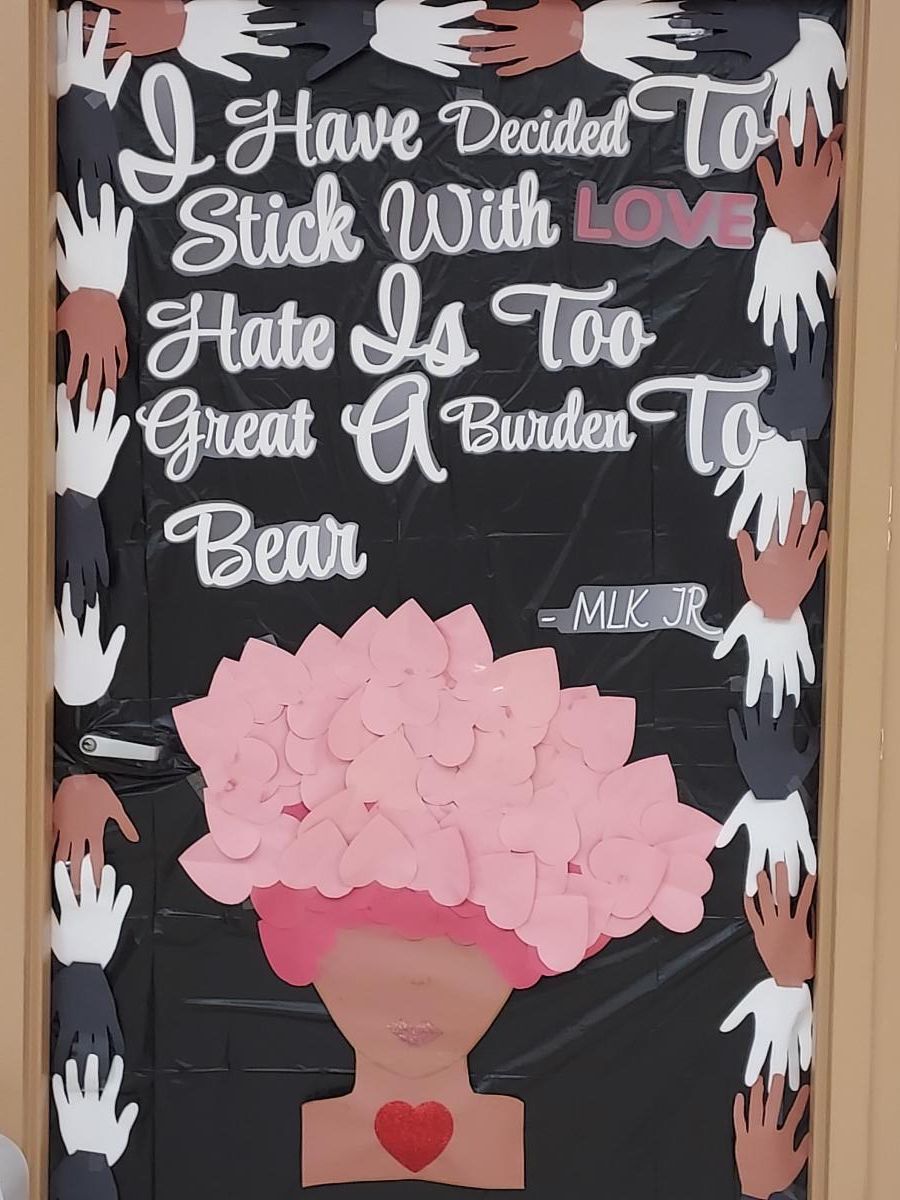 I Have Decided To
Stick With LOVE
Hate Is Too
Great A Burden To
Bear
- MLK JR